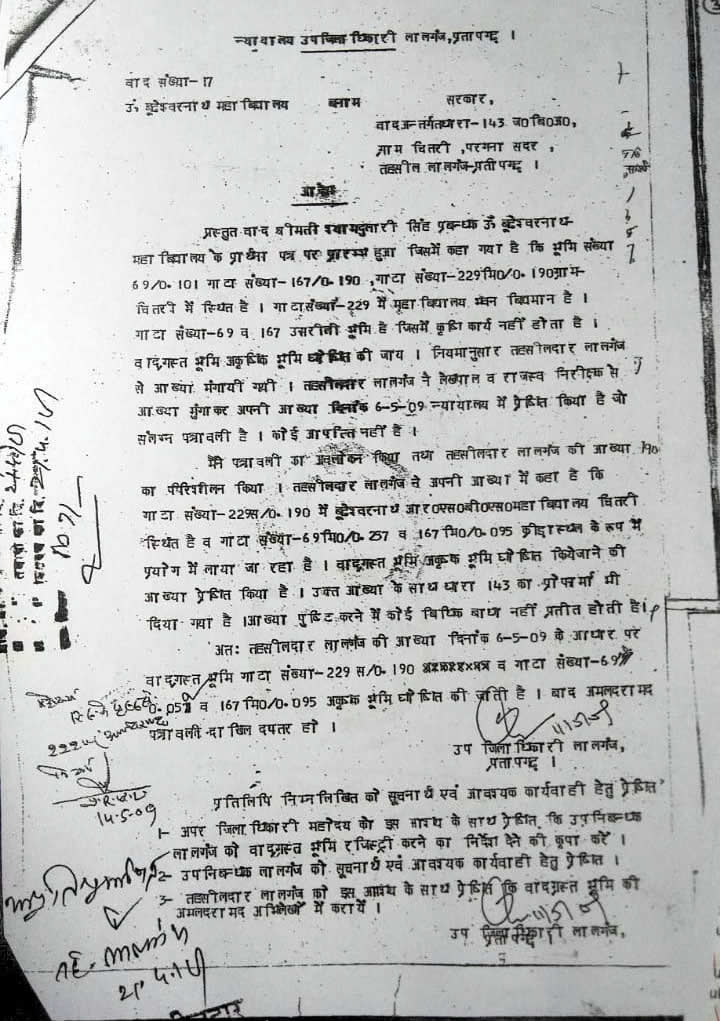 न्यायालय उपजिलाधिकारी लालगंज, प्रतापगढ़ ।
वाद संख्या-17
उँ बूढेश्वरनाथ महा विद्यालय बनाम सरकार,
वादअन्तर्गतधारा-143 ज0वि0अ0,
ग्राम चितरी , परगना सदर ,
तहसील लालगंज-प्रतापगढ़ ।
आदेश
प्रस्तुत वाद श्रीमती श्यामदुलारी सिंह प्रबन्धक उँ बूढेश्वरनाथ-
महा विद्यालय के प्रार्थना पत्र पर प्रारम्भ हुआ जिसमें कहा गया है कि भूमि संख्या
69/0.101 गाटा संख्या-167/0.190 ,गाटा संख्या-229मि0/0.190ग्राम-
चितरी में स्थित है । गाटासंख्या-229 में महा विद्यालय भवन विद्यमान है ।
गाटा संख्या-69 व 167 उसरीली भूमि है जिसमें कृषि कार्य नहीं होता है ।
वादग्रस्त भूमि अकृषिक भूमि घोषित की जाय । नियमानुसार तहसीलदार लालगंज
से आख्या मंगायी गयी । तहसीलदार लालगंज ने लेखपाल व राजस्व निरीक्षक से
आख्या मंगाकर अपनी आख्या दिनांक 6-5-09 न्यायालय में प्रेषित किया है जो
संलग्न पत्रावली है । कोई आपत्ति नहीं है ।
मैने पत्रावली का अवलोकन किया तथा तहसीलदार लालगंज की आख्या
का परिशीलन किया । तहसीलदार लालगंज ने अपनी आख्या में कहा है कि
गाटा संख्या-229स/0.190 में बूढेश्वरनाथ आर0एस0बी0एस0महा विद्यालय चितरी
स्थित है व गाटा संख्या-69मि0/0.257 व 167मि0/0.095 क्रीडास्थल के रूप में
प्रयोग में लाया जा रहा है । वादग्रस्त भूमि अकृषक भूमि घोषित कियेजाने की
आख्या प्रेषित किया है । उक्त आख्या के साथ धारा 143 का प्रोफार्मा भी
दिया गया है ।आख्या पुष्टि करने में कोई विधिक बाधा नहीं प्रतीत होती है।
अतः तहसीलदार लालगंज की आख्या दिनांक 6-5-09 के आधार पर
वादग्रस्त भूमि गाटा संख्या-229 स/0.190 व गाटा संख्या-69
0.057 व 167मि0/0.095 अकृषक भूमि घोषित की जाती है । बाद अमलदरामद
पत्रावली दाखिल दफ्तर हो ।
उप जिलाधिकारी लालगंज,
प्रतापगढ़ ।
14-5-09
प्रतिलिपि निम्नलिखित को सूचनार्थ एवं आवश्यक कार्यवाही हेतु प्रेषित
1- अपर जिलाधिकारी महोदय को इस आशय के साथ प्रेषित कि उपनिबन्धक
लालगंज को वादग्रस्त भूमि रजिस्ट्री करने का निर्देश देने की कृपा करें ।
2- उपनिबन्धक लालगंज को सूचनार्थ एवं आवश्यक कार्यवाही हेतु प्रेषित ।
3- तहसीलदार लालगंज को इस आशय के साथ प्रेषित कि वादग्रस्त भूमि की
अमलदरामद अभिलेखों में करायें ।
उप जिलाधिकारी लालगंज,
प्रतापगढ़ ।